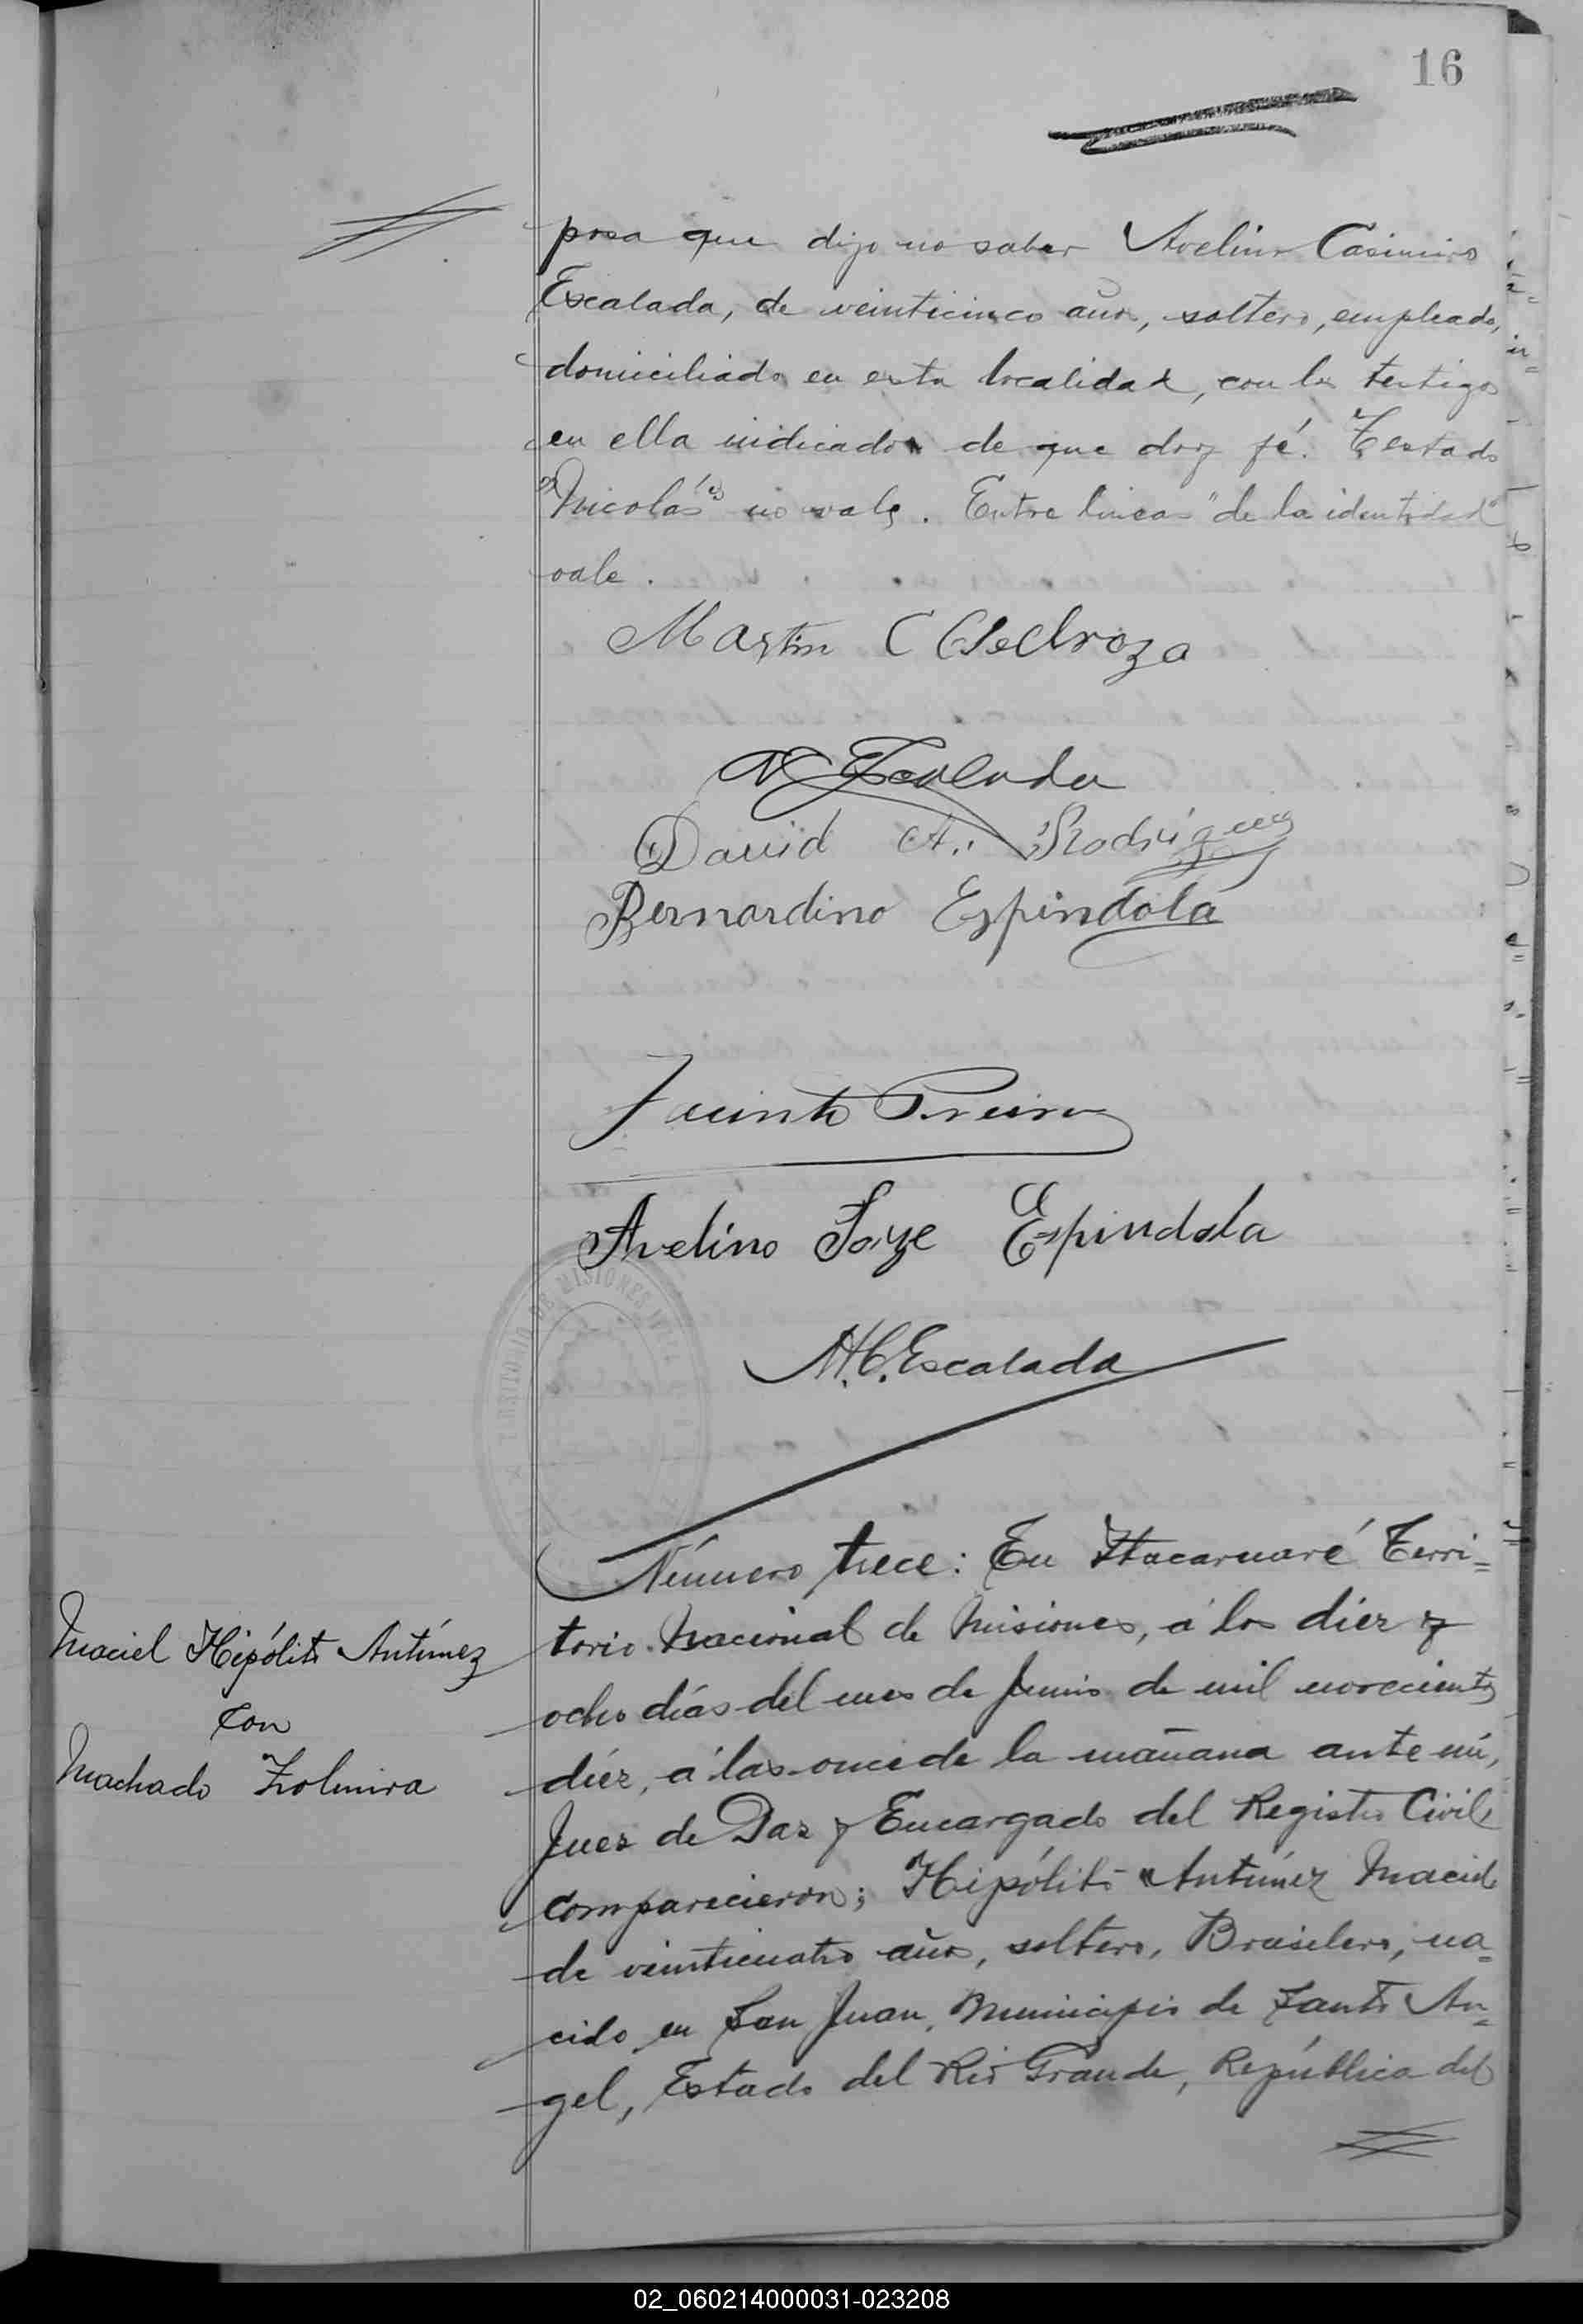 16
posa que dijo no saber Avelino Casimiro
Escalada, de veinticinco años, soltero, empleado,
domiciliado en esta localidad, con los testigos
en ella indicados de que doy fé. Testado
"Nicolás" no vale. Entre lineas "de la identidad"
vale.
Martin C Pedroza
A C Escalada
David A. Rodriguez
Bernardino Espindola
Jacinto Pereira
Avelino Espindola
A. C. Escalada
TERRITORIO DE MISIONES
Número trece: En Itacaruaré Terri=
torio Nacional de Misiones, á los diez y
ocho días del mes de Junio de mil novecientos
diéz, á las once de la mañana ante mí,
Juez de Paz y Encargado del Registro Civil
comparecieron; Hipólito Antúnez Maciel
de veinticuatro años, soltero, Brasilero, na=
cido en San Juan, Municipio de Santo An=
gel, Estado del Rio Grande, República del
Maciel Hipólito Antúnez
Con
Machado Zolmira
02_060214000031-023208